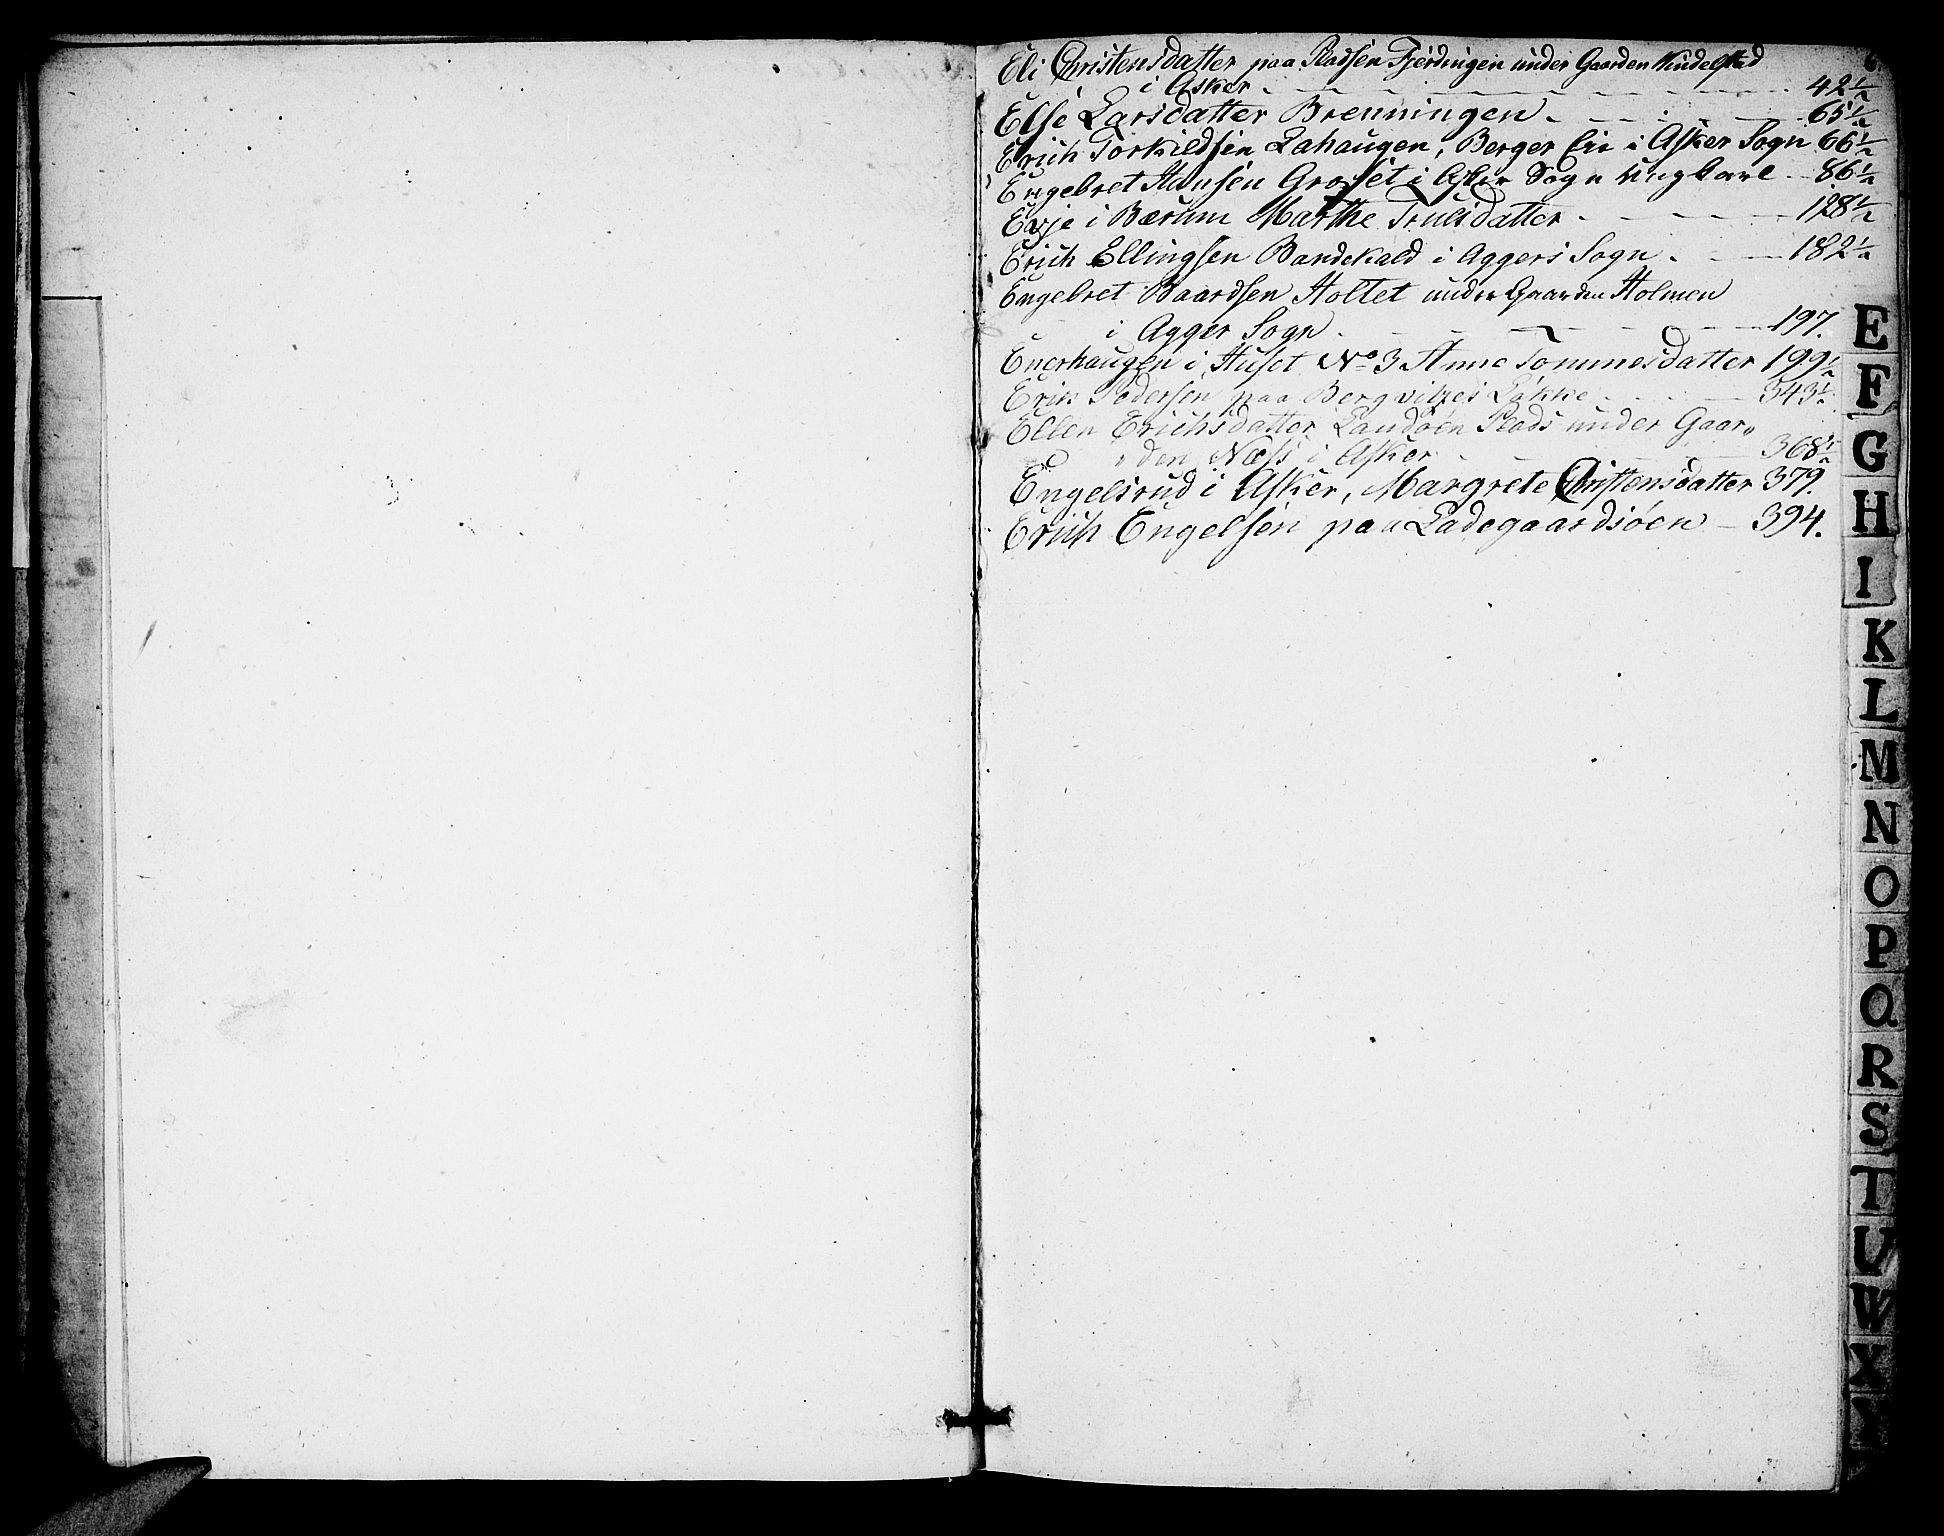 6
Eli Christensdatter paa Pladsen Fjerdingen under Gaarden Kindelstad
i Asker - - - 42½
Else Larsdatter Brenningen - - - 65½
Erich Torkildsen Lahaugen, Berger Eie i Asker Sogn 66½
Engebret Hansen Groset i Asker Sogn Ungkarl - 86½
Evje i Bærum Marthe Trulsdatter - - - 128½
Erich Ellingsen Bandekald i Aggers Sogn - - 182½
Engebret Baardsen Holtet under Gaarden Holmen
i Agger Sogn - - - 197.
Enerhaugen i Huset No 3 Anne Tommesdatter 199½
Erik Pedersen paa Bergvitzes Løkke - - - 343½
Ellen Erichsdatter Landøen Plads under Gaar„
„den Næss i Asker - - - 368½
Engelsrud i Asker, Margrete Christensdatter 379.
Erich Engelsen paa Ladegaardsøen - 394.
E
F
G
H
I
K
L
M
N
O
P
Q
R
S
T
U
W
X
Y